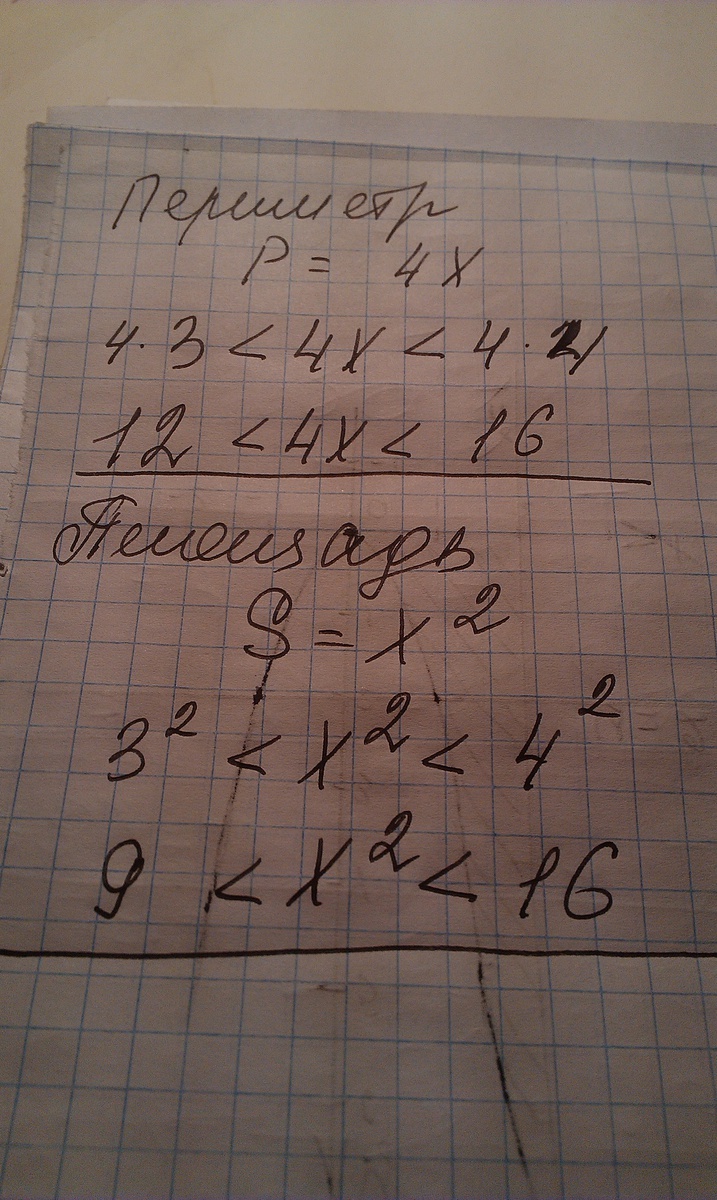 Периметр
P = 4x
4·3 < 4x < 4·4
12 < 4x < 16
Площадь
S = x²
3² < x² < 4²
9 < x² < 16